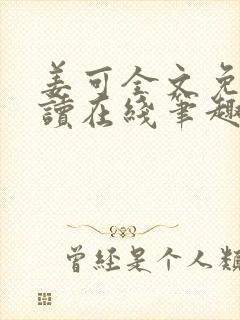 姜可全文免
讀在綫筆趣
曾經是个人類